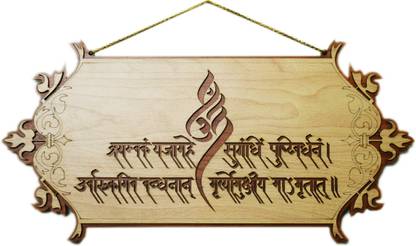 ॐ
त्र्यम्बकं यजामहे सुगन्धिं पुष्टिवर्धनं।
उर्वारुकमिव बन्धनान् मृत्योर्मुक्षीय माऽमृतात्॥